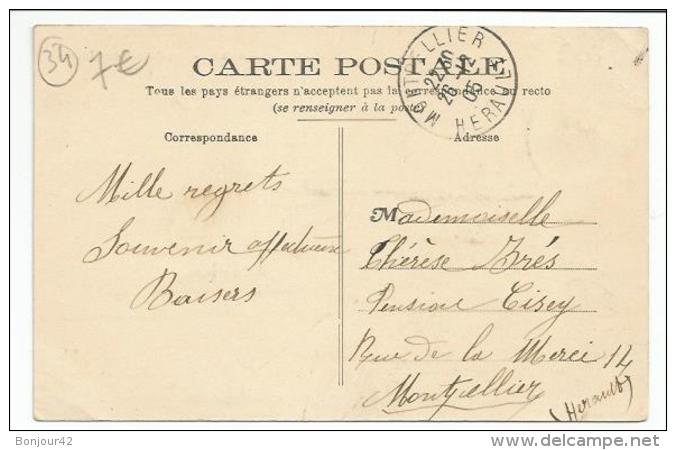 34
7€
MONTPELLIER
22 30
26 -12
05
HERAULT
CARTE POSTALE
Tous les pays étrangers n'acceptent pas la correspondance au recto
(se renseigner à la poste)
Correspondance
Adresse
Mille regrets
Souvenir affectueux
Baisers
Mademoiselle
Thérèse Brés
Pension Cisey
Rue de la Merci 14
Montpellier
(Herault)
Bonjour42
www.delcampe.net